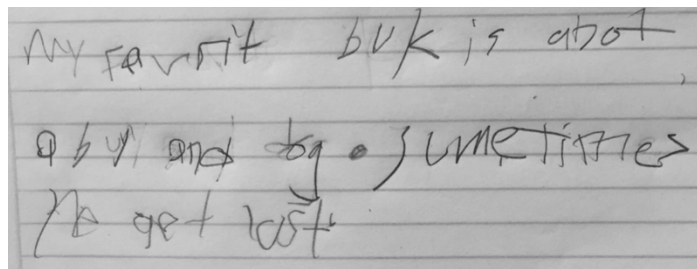 My favrit buk is abot
a buy and dog. sumetimes
he get lost.